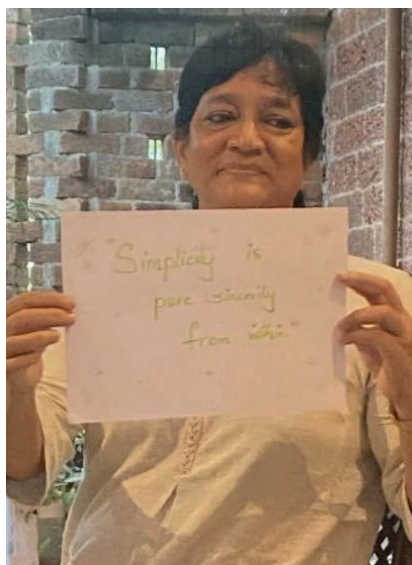 "Simplicity is
pure sincerity
from within."